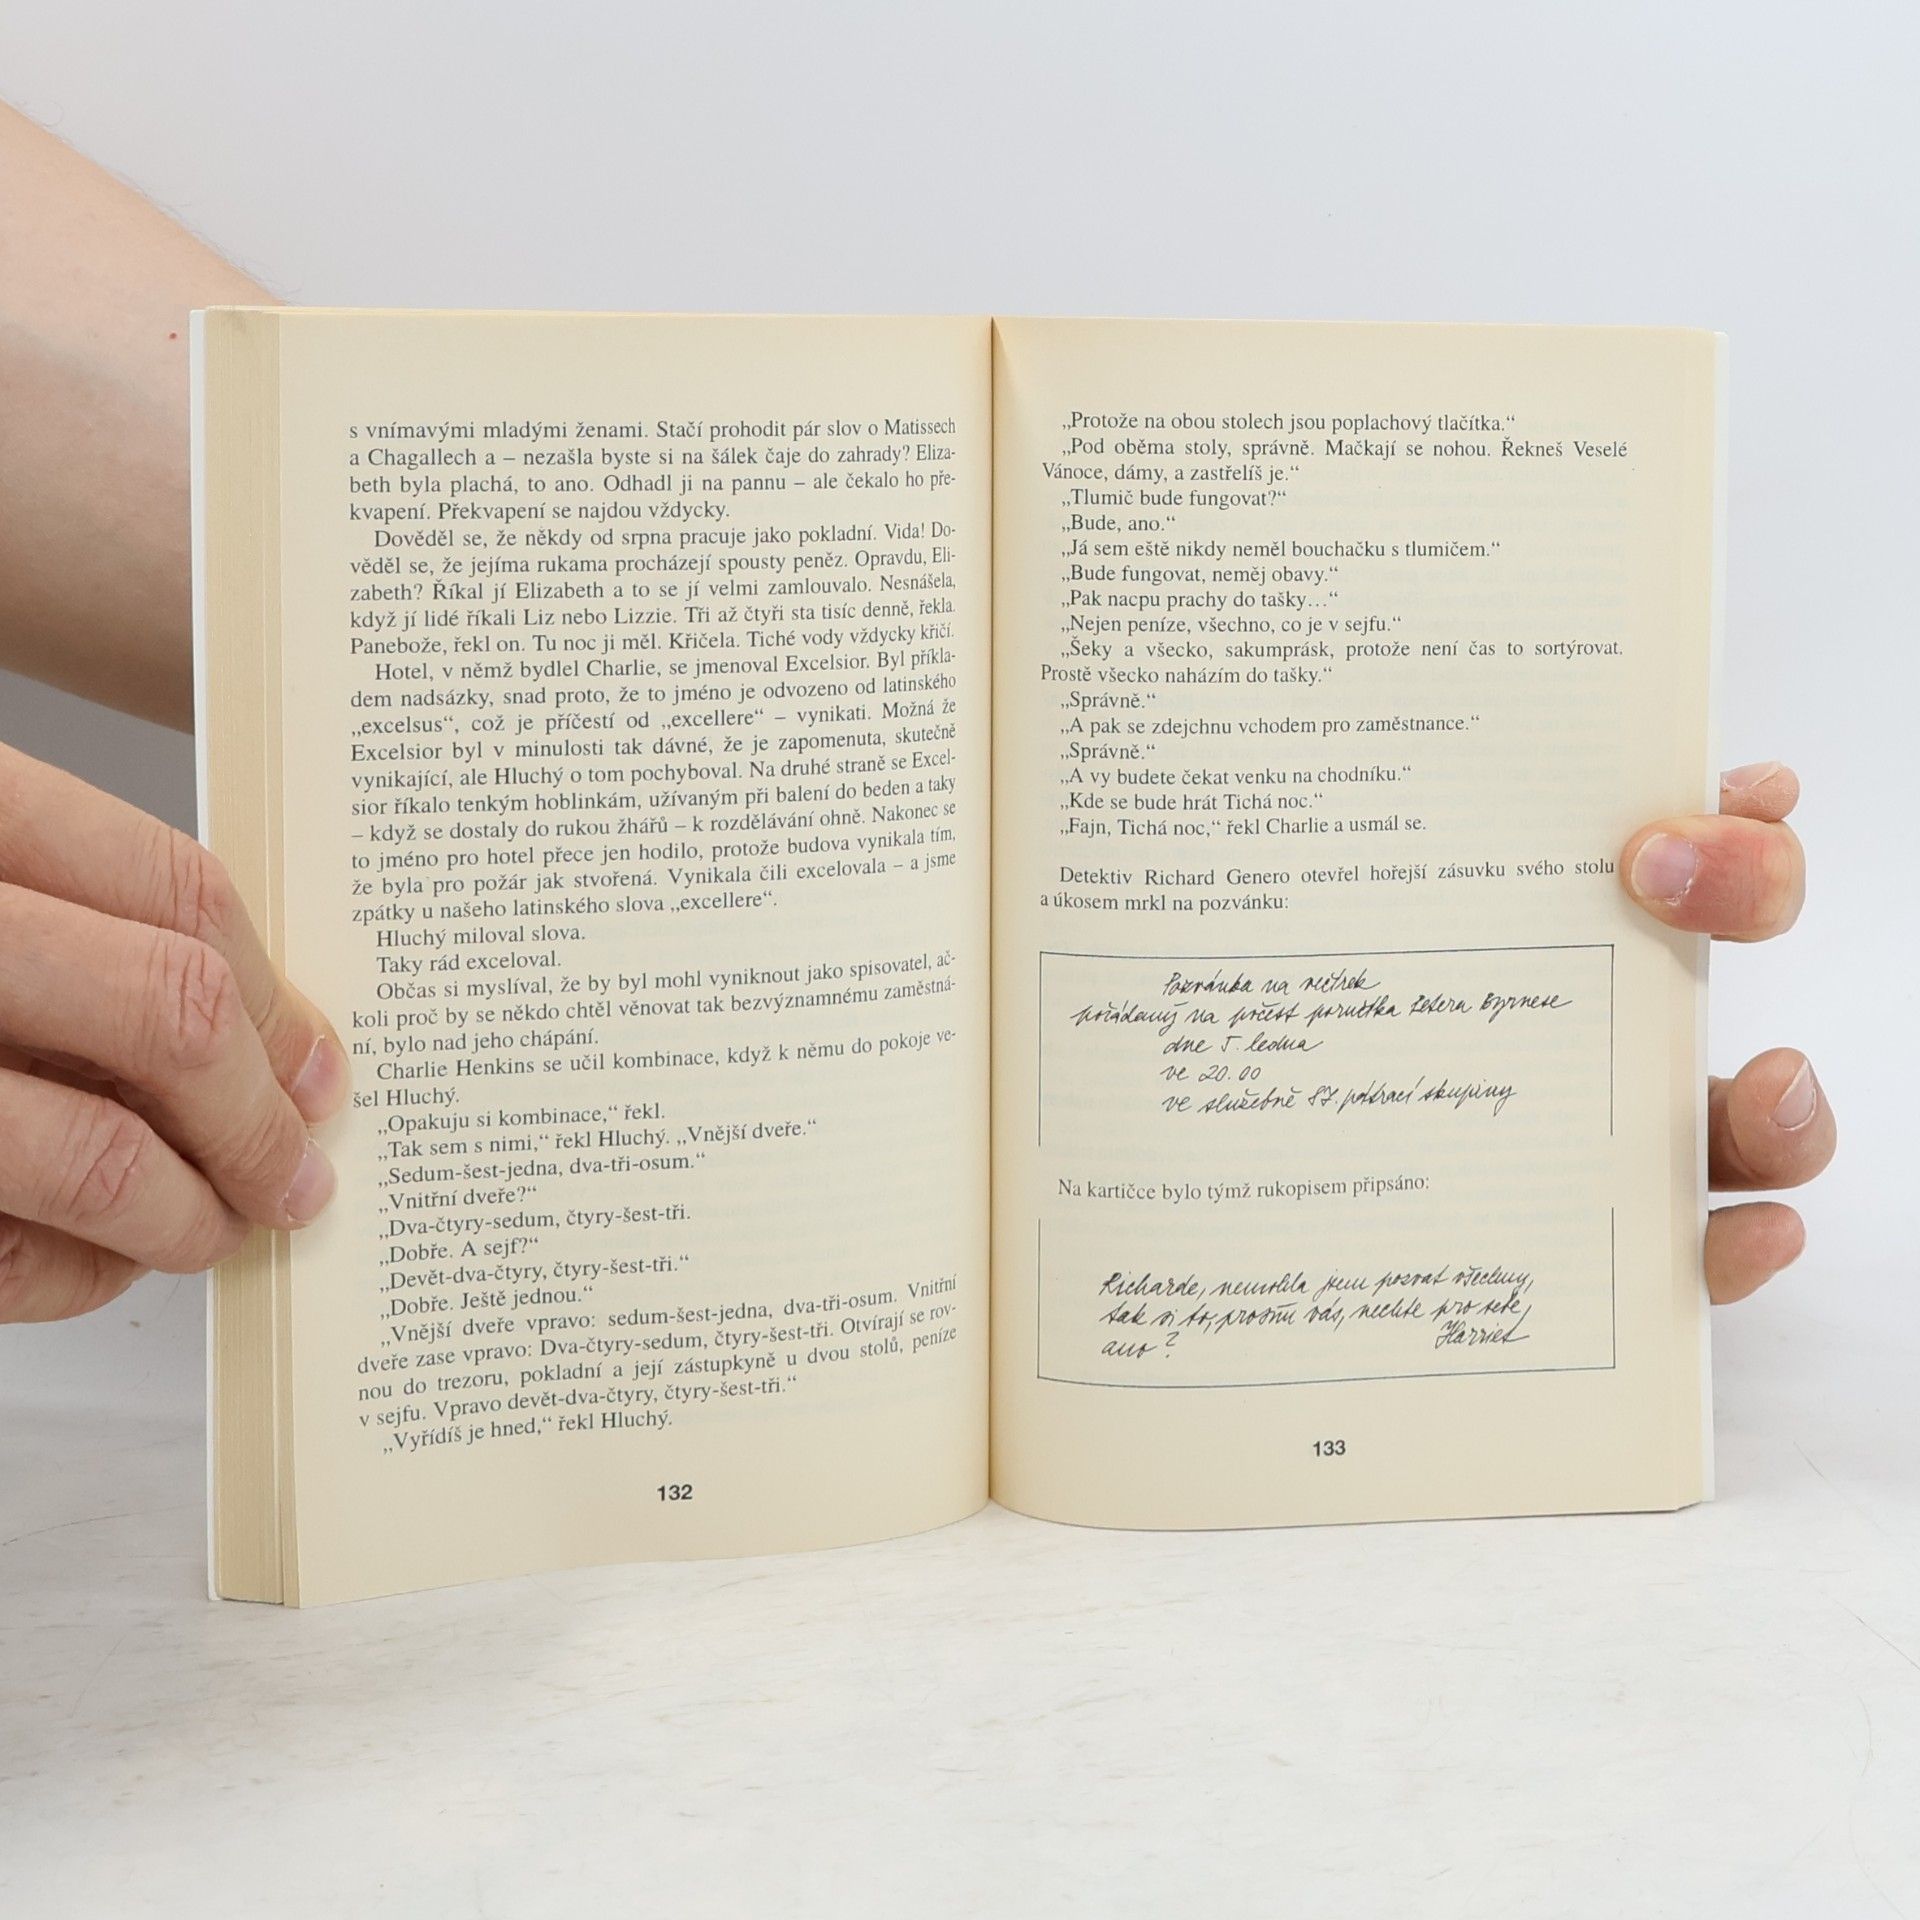 s vnímavými mladými ženami. Stačí prohodit pár slov o Matissech
a Chagallech a – nezašla byste si na šálek čaje do zahrady? Eliza-
beth byla plachá, to ano. Odhadl ji na pannu – ale čekalo ho pře-
kvapení. Překvapení se najdou vždycky.
Dověděl se, že někdy od srpna pracuje jako pokladní. Vida! Do-
věděl se, že jejíma rukama procházejí spousty peněz. Opravdu, Eli-
zabeth? Říkal jí Elizabeth a to se jí velmi zamlouvalo. Nesnášela,
když jí lidé říkali Liz nebo Lizzie. Tři až čtyři sta tisíc denně, řekla.
Panebože, řekl on. Tu noc ji měl. Křičela. Tiché vody vždycky křičí.
Hotel, v němž bydlel Charlie, se jmenoval Excelsior. Byl příkla-
dem nadsázky, snad proto, že to jméno je odvozeno od latinského
„excelsus“, což je příčestí od „excellere“ – vynikati. Možná že
Excelsior byl v minulosti tak dávné, že je zapomenuta, skutečně
vynikající, ale Hluchý o tom pochyboval. Na druhé straně se Excel-
sior říkalo tenkým hoblinkám, užívaným při balení do beden a taky
– když se dostaly do rukou žhářů – k rozdělávání ohně. Nakonec se
to jméno pro hotel přece jen hodilo, protože budova vynikala tím,
že byla pro požár jak stvořená. Vynikala čili excelovala – a jsme
zpátky u našeho latinského slova „excellere“.
Hluchý miloval slova.
Taky rád exceloval.
Občas si myslíval, že by byl mohl vyniknout jako spisovatel, ač-
koli proč by se někdo chtěl věnovat tak bezvýznamnému zaměstná-
ní, bylo nad jeho chápání.
Charlie Henkins se učil kombinace, když k němu do pokoje ve-
šel Hluchý.
„Opakuju si kombinace,“ řekl.
„Tak sem s nimi,“ řekl Hluchý. „Vnější dveře.“
„Sedum-šest-jedna, dva-tři-osum.“
„Vnitřní dveře?“
„Dva-čtyry-sedum, čtyry-šest-tři.
„Dobře. A sejf?“
„Devět-dva-čtyry, čtyry-šest-tři.“
„Dobře. Ještě jednou.“
„Vnější dveře vpravo: sedum-šest-jedna, dva-tři-osum. Vnitřní
dveře zase vpravo: Dva-čtyry-sedum, čtyry-šest-tři. Otvírají se rov-
nou do trezoru, pokladní a její zástupkyně u dvou stolů, peníze
v sejfu. Vpravo devět-dva-čtyry, čtyry-šest-tři.“
„Vyřídíš je hned,“ řekl Hluchý.
132
„Protože na obou stolech jsou poplachový tlačítka.“
„Pod oběma stoly, správně. Mačkají se nohou. Řekneš Veselé
Vánoce, dámy, a zastřelíš je.“
„Tlumič bude fungovat?“
„Bude, ano.“
„Já sem eště nikdy neměl bouchačku s tlumičem.“
„Bude fungovat, neměj obavy.“
„Pak nacpu prachy do tašky…“
„Nejen peníze, všechno, co je v sejfu.“
„Šeky a všecko, sakumprásk, protože není čas to sortýrovat.
Prostě všecko naházím do tašky.“
„Správně.“
„A pak se zdejchnu vchodem pro zaměstnance.“
„Správně.“
„A vy budete čekat venku na chodníku.“
„Kde se bude hrát Tichá noc.“
„Fajn, Tichá noc,“ řekl Charlie a usmál se.
Detektiv Richard Genero otevřel hořejší zásuvku svého stolu
a úkosem mrkl na pozvánku:
Pozvánka na večírek
pořádaný na počest poručíka Petera Byrnese
dne 5. ledna
ve 20.00
ve služebně 87. pátrací skupiny
Na kartičce bylo týmž rukopisem připsáno:
Richarde, nemohla jsem pozvat všechny,
tak si to, prosím vás, nechte pro sebe,
ano?
Harriet
133